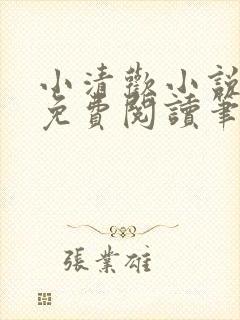 小清歡小說
免費閱讀筆
張業雄